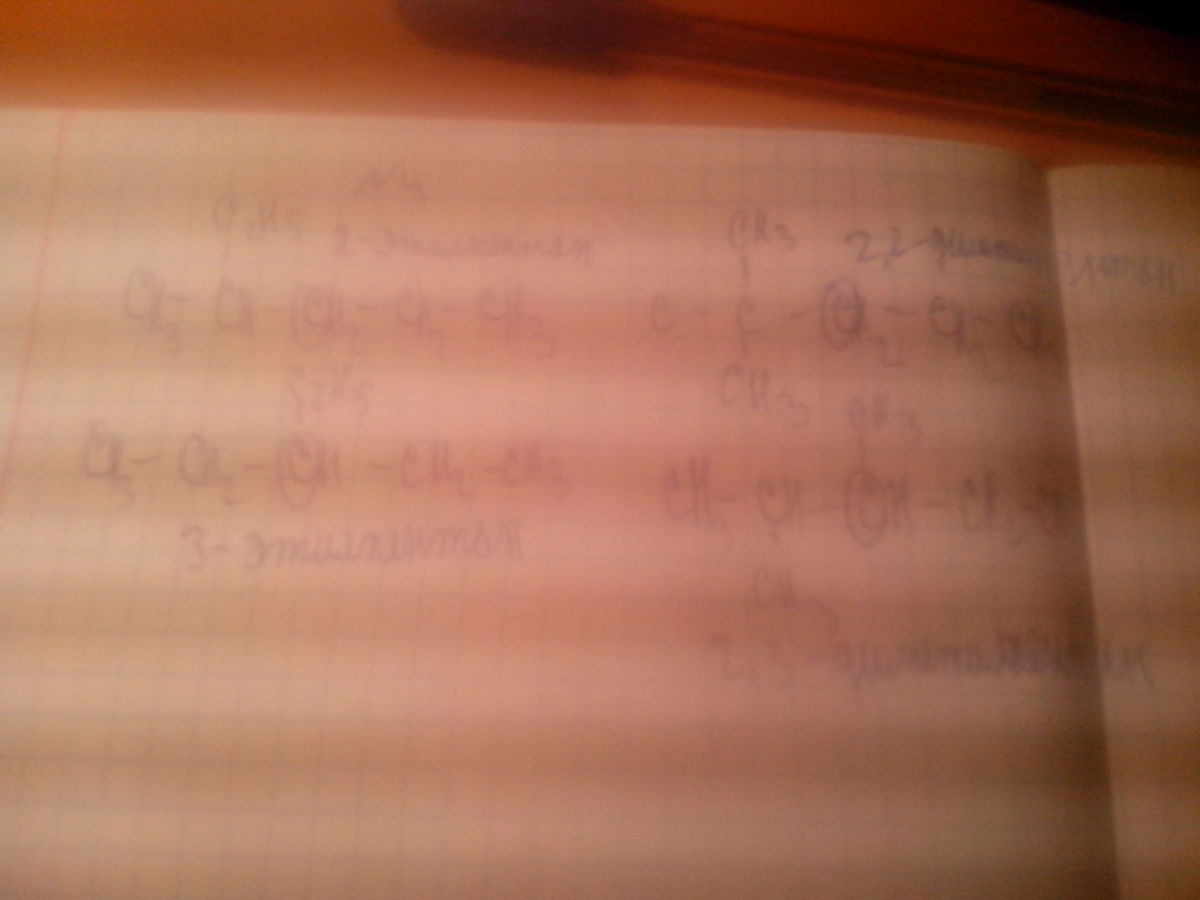 №4
C2H5 2-этилпентан
CH3 - CH - CH2 - CH2 - CH3
C2H5
CH3 - CH2 - CH - CH2 - CH3
3-этилпентан
CH3
C - C - CH2 - CH2 - CH
CH3
CH3
CH3 - CH - CH - CH2 -
CH3
2,3-диметилпентан